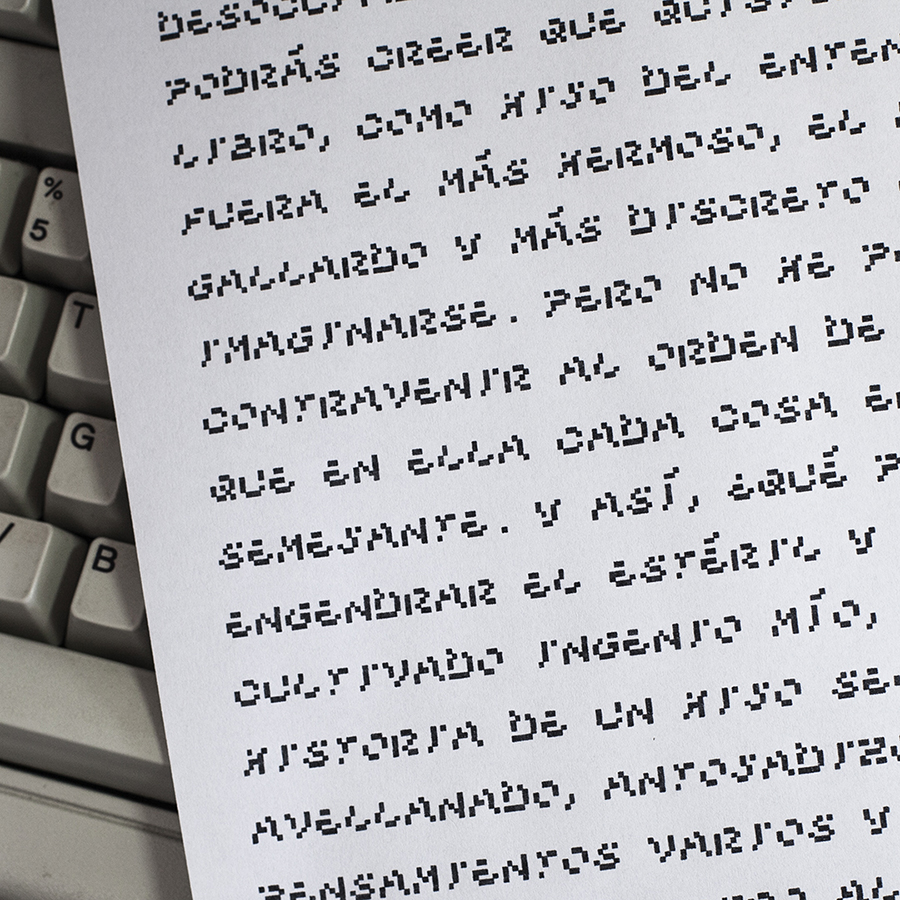 PODRÁS CREER QUE
LIBRO, COMO HIJO DEL
FUERA EL MÁS HERMOSO, EL
GALLARDO Y MÁS DISCRETO
IMAGINARSE. PERO NO HE
CONTRAVENIR AL ORDEN DE
QUE EN ELLA CADA COSA
SEMEJANTE. Y ASÍ, ¿QUÉ
ENGENDRAR EL ESTÉRIL Y
CULTIVADO INGENIO MÍO,
HISTORIA DE UN HIJO
AVELLANADO,
PENSAMIENTOS VARIOS Y
%
5
T
G
B